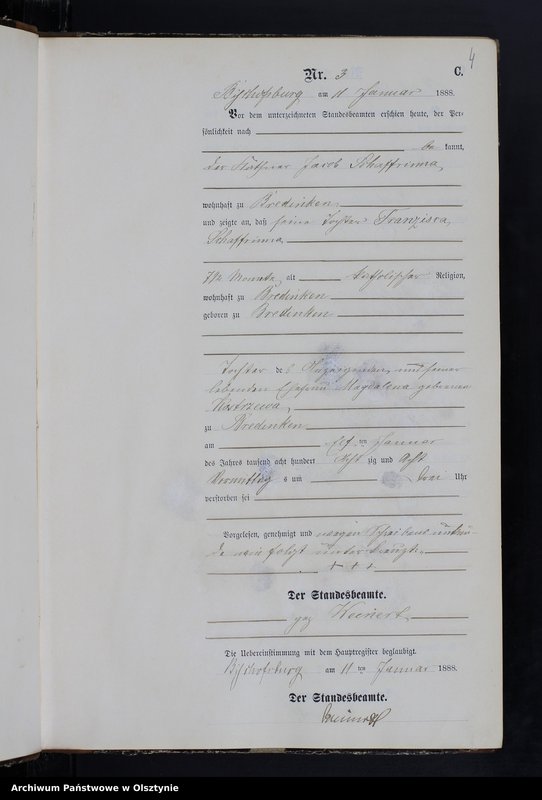 4
Nr. 3 C.
Bischofsburg am 11 Januar 1888.
Vor dem unterzeichneten Standesbeamten erschien heute, der Per-
sönlichkeit nach
be kannt,
der Käthner Jacob Schaffrinna,
wohnhaft zu Bredinken,
und zeigte an, daß seine Tochter Franzisca
Schaffrinna,
7½ Monate, alt katholischer Religion,
wohnhaft zu Bredinken
geboren zu Bredinken
Tochter des Anzeigenden, und seiner
lebenden Ehefrau Magdalena geborene
Kostrzewa,
zu Bredinken
am elften Januar
des Jahres tausend acht hundert acht zig und acht
Vormittag s um drei Uhr
verstorben sei
Vorgelesen, genehmigt und wegen Schreibens unkun-
de wie folgt unterkreuzt.
+ + +
Der Standesbeamte.
gez Weinert
Die Uebereinstimmung mit dem Hauptregister beglaubigt.
Bischofsburg am 11 ten Januar 1888.
Der Standesbeamte.
Weinert
Archiwum Państwowe w Olsztynie